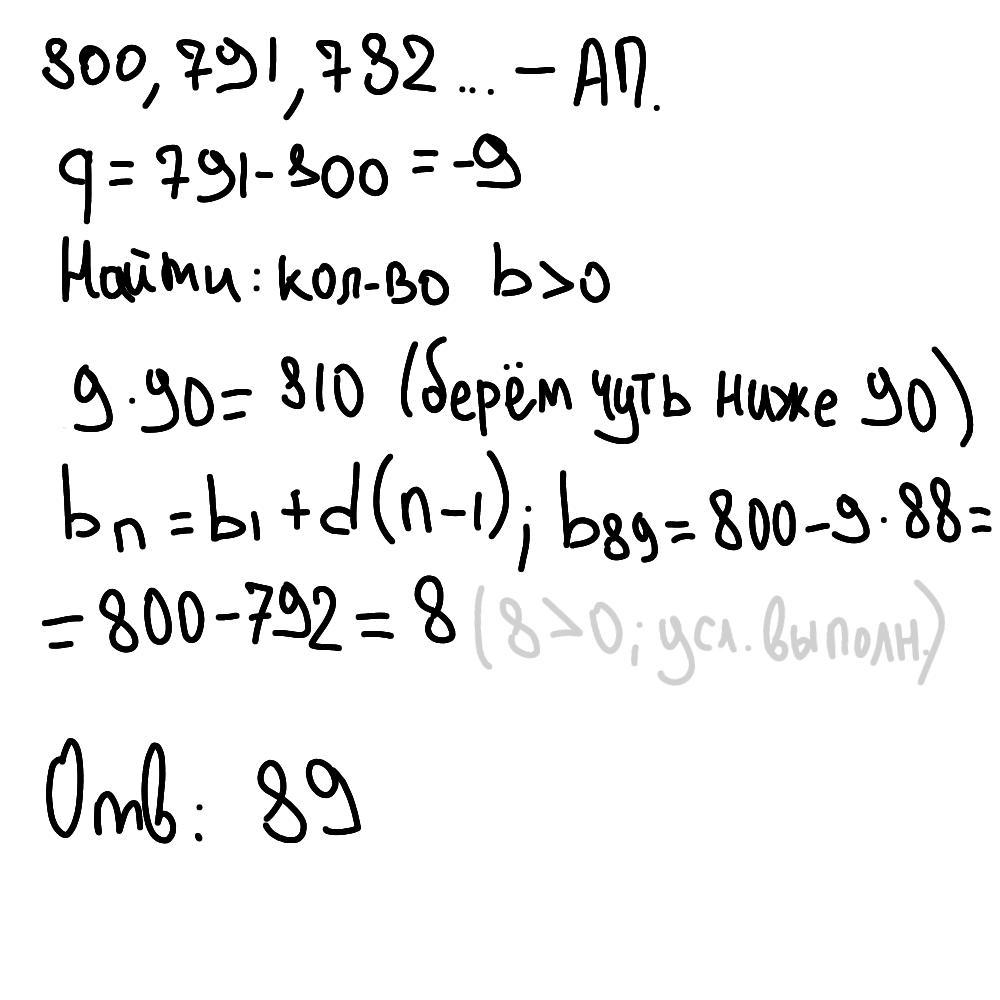 800, 791, 782 ... – АП.
q = 791 - 800 = -9
Найти: кол-во b > 0
9 · 90 = 810 (берём чуть ниже 90)
bn = b1 + d(n-1); b89 = 800 - 9 · 88 =
= 800 - 792 = 8 (8 > 0; усл. выполн.)
Отв: 89